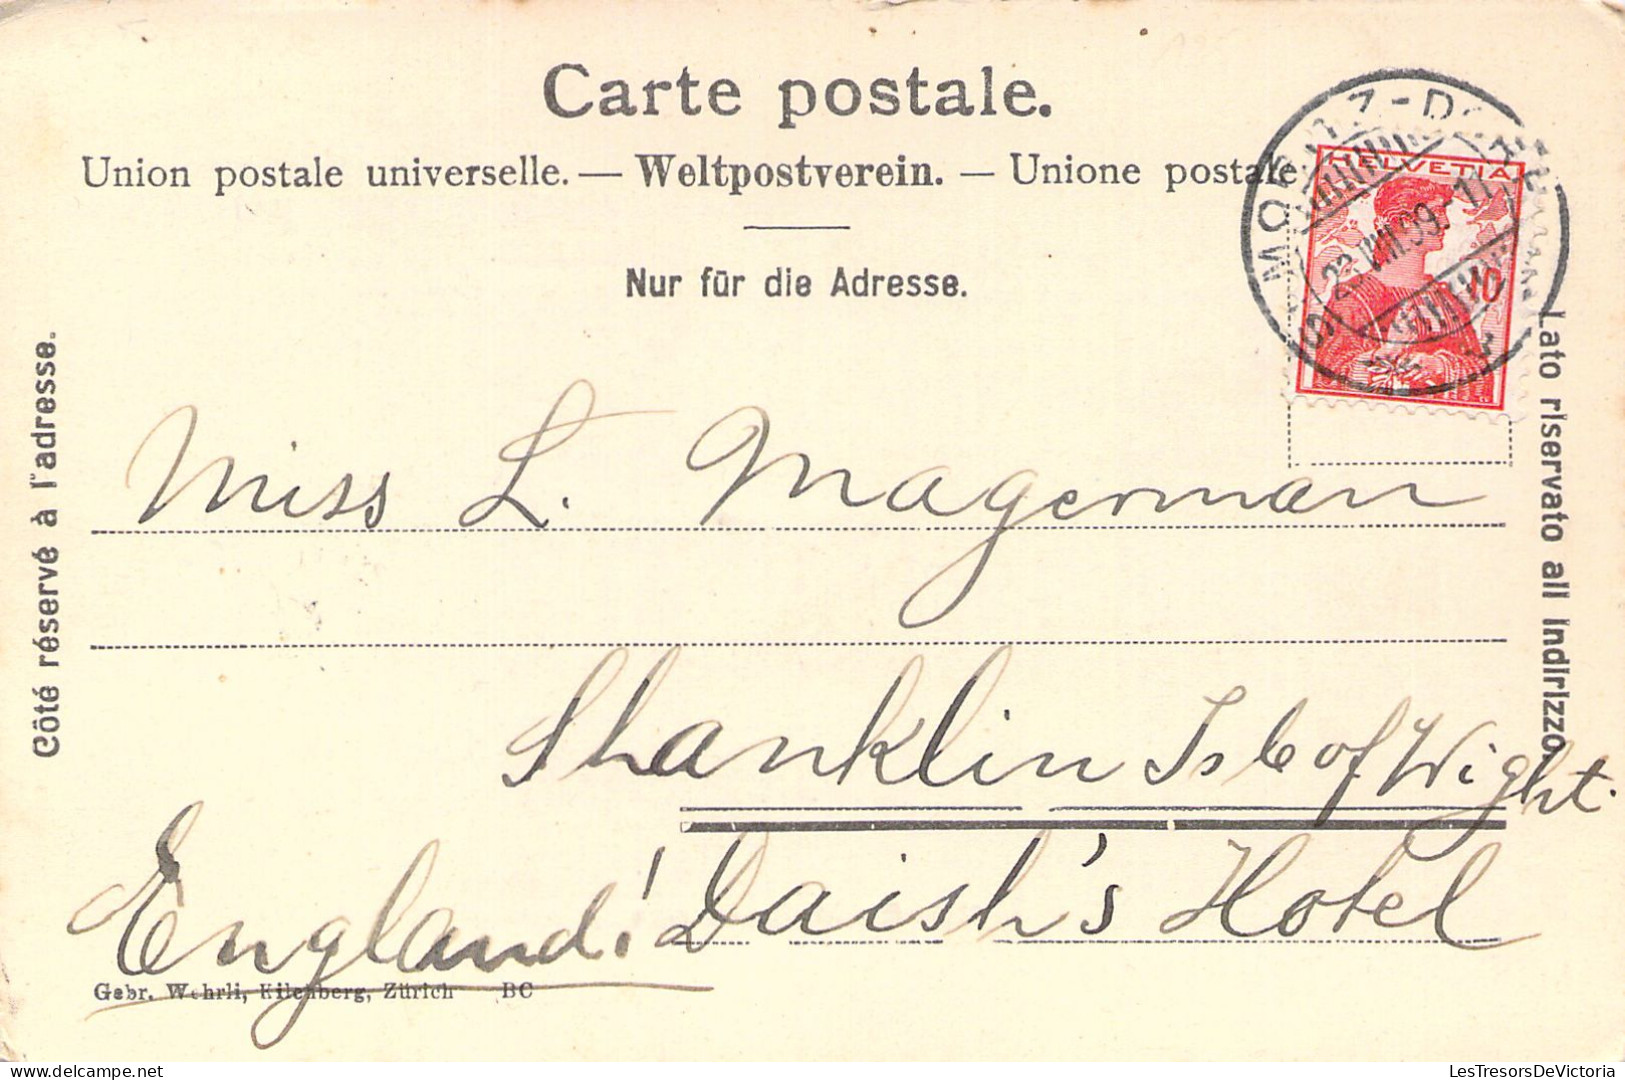 Carte postale.
Union postale universelle. — Weltpostverein. — Unione postale
Nur für die Adresse.
HELVETIA
10
Côté réservé à l'adresse.
Lato riservato all indirizzo.
Miss L. Magerman
Shanklin Isle of Wight.
England! Daish's Hotel
Gebr. Wehrli, Kilchberg, Zürich BC
LesTresorsDeVictoria